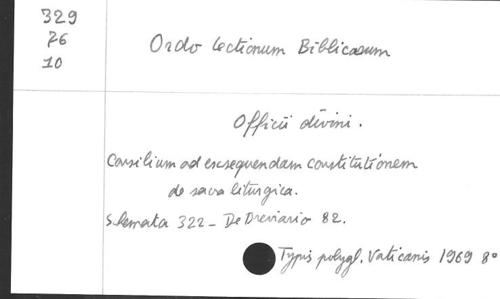 329
76
10
Ordo lectionum Biblicarum
Officii divini.
Consilium ad exsequendam constitutionem
de sacra liturgica.
Schemata 322 - De Breviario 82.
Typis polygl. Vaticanis 1969 8°